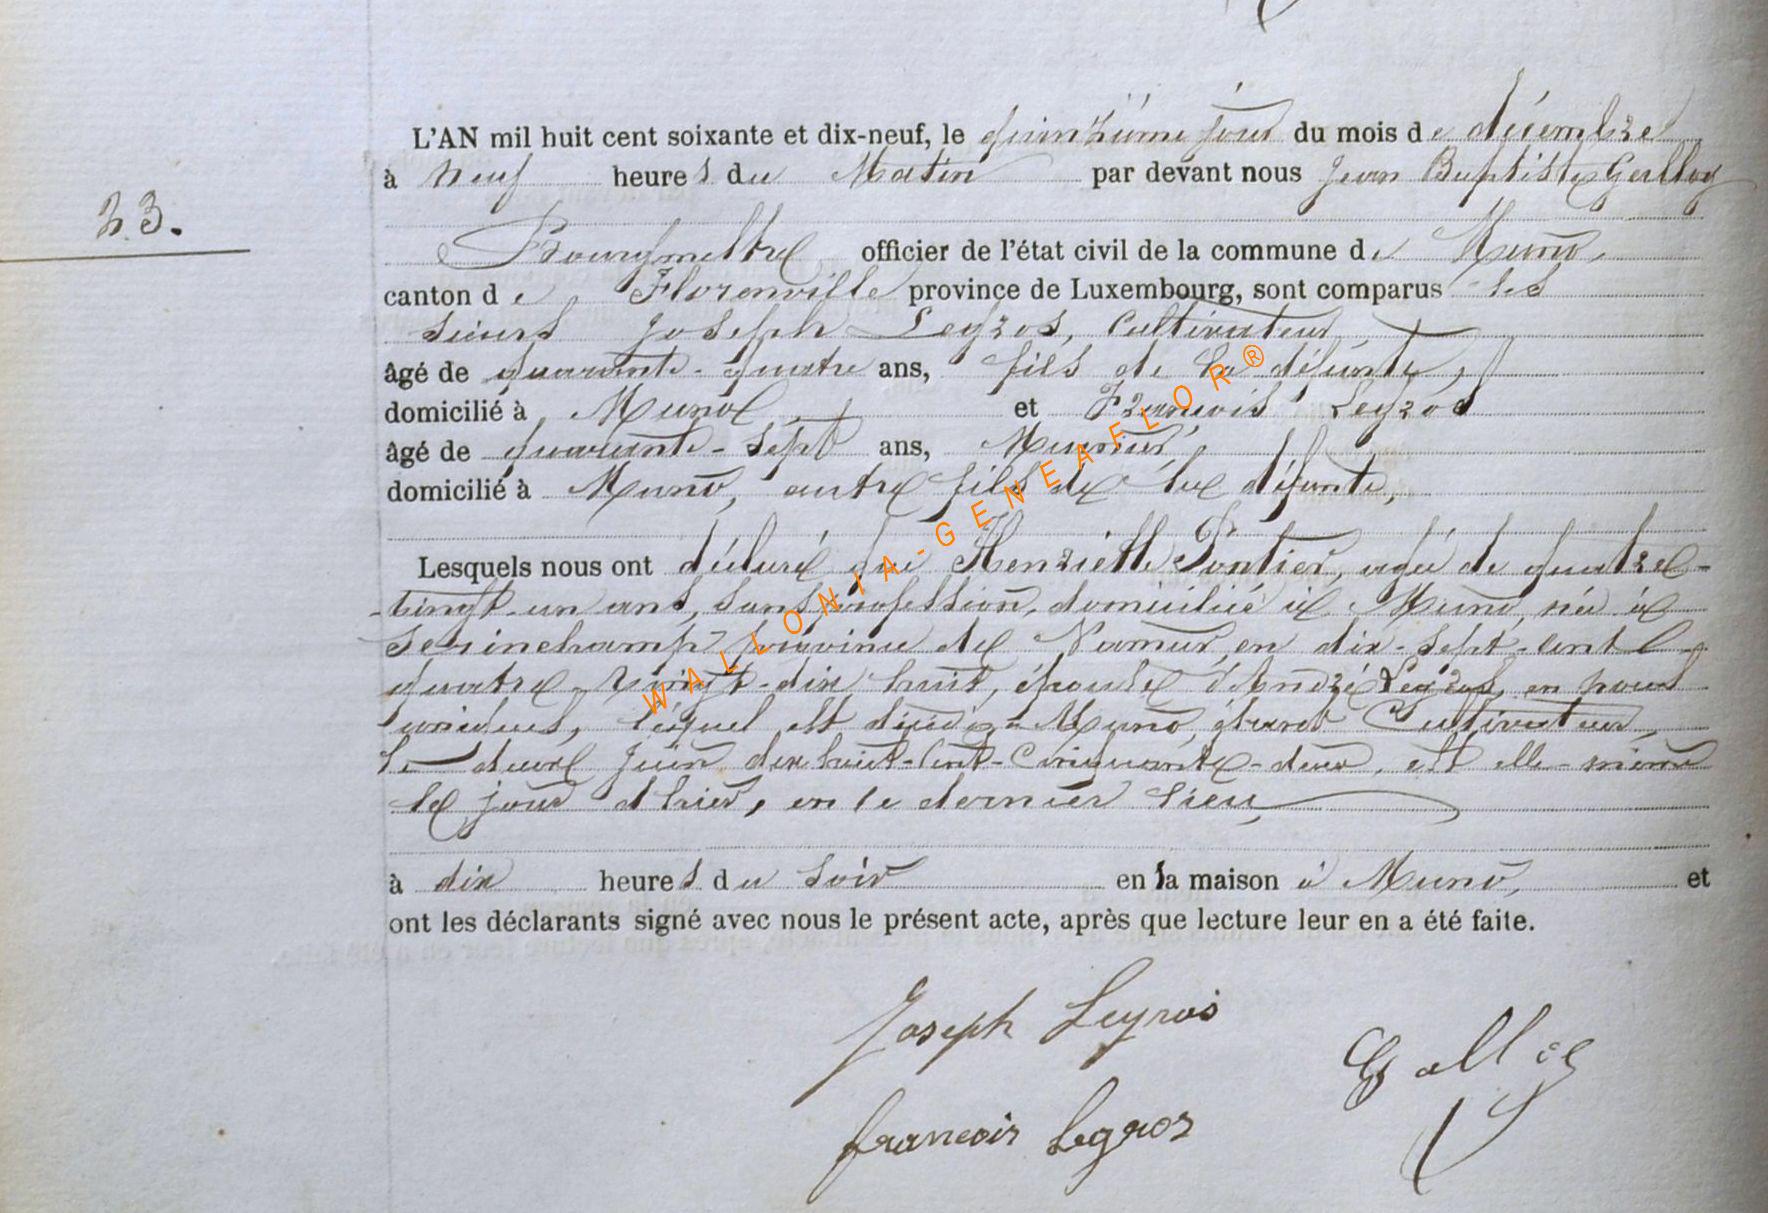 L'AN mil huit cent soixante et dix-neuf, le quinzième jour du mois de décembre
à neuf heures du Matin par devant nous Jean Baptiste
23.
Bourgmestre officier de l'état civil de la commune de Muno,
canton de Florenville province de Luxembourg, sont comparus les
sieurs Joseph Legros, Cultivateur,
âgé de quarante-quatre ans, fils de la défunte,
domicilié à Muno et François Legros
âgé de quarante-sept ans,
domicilié à Muno, autre fils de la défunte,
Lesquels nous ont déclaré que Henriette Pontier, agée de quatre-
-vingt-un ans, sans profession, domiciliée à Muno, née à
Serinchamp province de Namur, en dix-sept-cent
quatre-vingt-dix huit, épouse d'André Legros, en
lequel est décédé à Muno, étant Cultivateur,
le deux Juin dix huit-cent-cinquante-deux, est elle-même
le jour d'hier, en ce dernier lieu,
à dix heures du soir en la maison à Muno, et
ont les déclarants signé avec nous le présent acte, après que lecture leur en a été faite.
Joseph Legros
francois Legros
WALLONIA-GENEAFLOR®